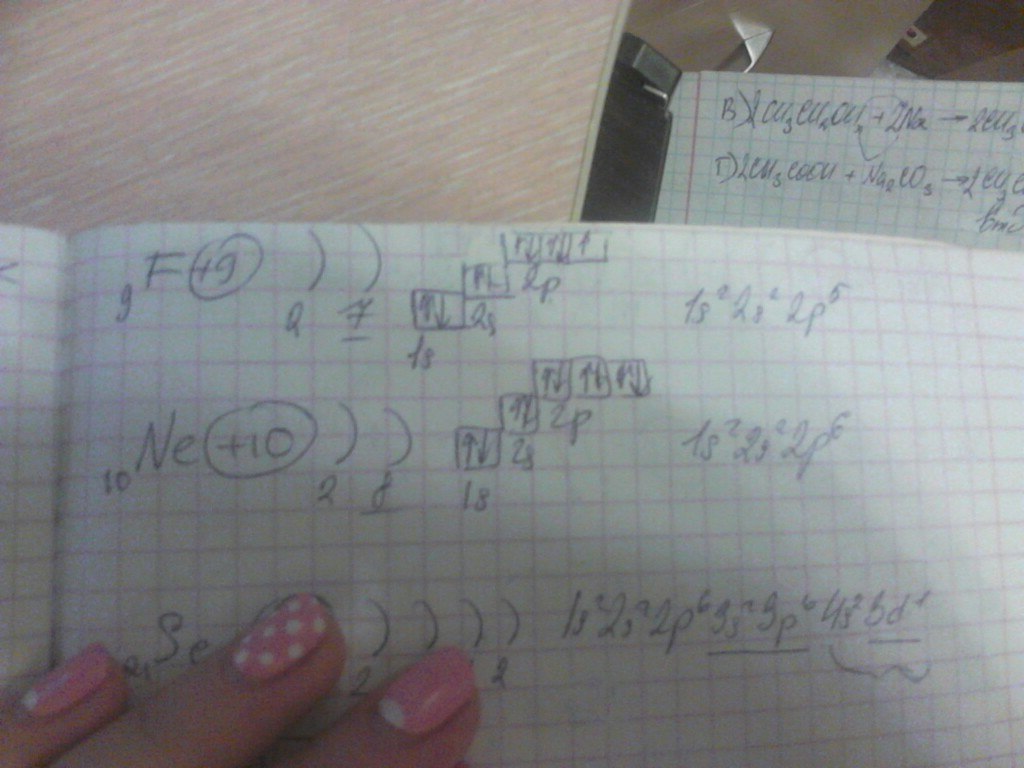 В) 2CH₃CH₂OH + 2Na → 2CH₃
Г) 2CH₃COOH + Na₂CO₃ → 2CH₃C
₉F +9 ) ) 2 7 1s 2s 2p 1s²2s²2p⁵
₁₀Ne +10 ) ) 2 8 1s 2s 2p 1s²2s²2p⁶
₂₁Sc ) ) ) ) 2 2 1s²2s²2p⁶3s²3p⁶4s²3d¹